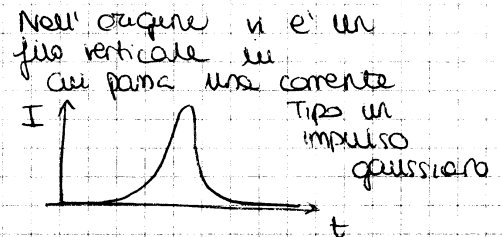 Nell' origine vi e' un
filo verticale in
cui passa una corrente
Tipo un
impulso
gaussiano
I
t